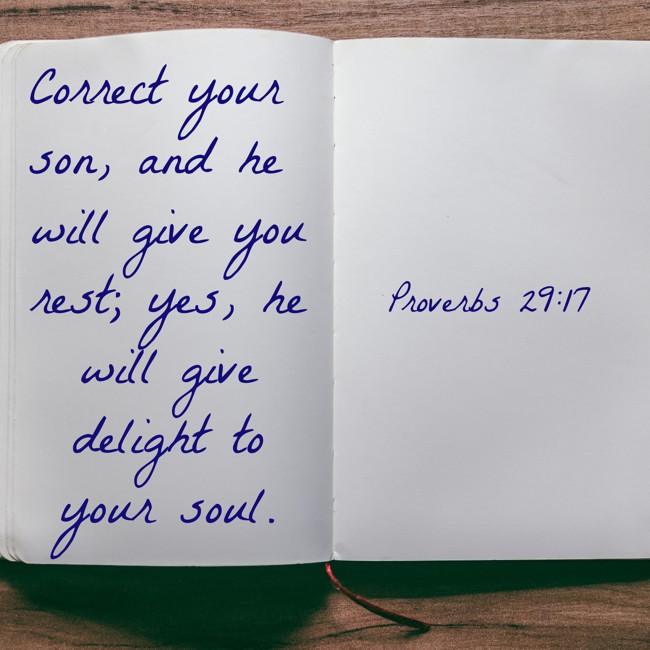 Correct your
son, and he
will give you
rest; yes, he
will give
delight to
your soul.
Proverbs 29:17